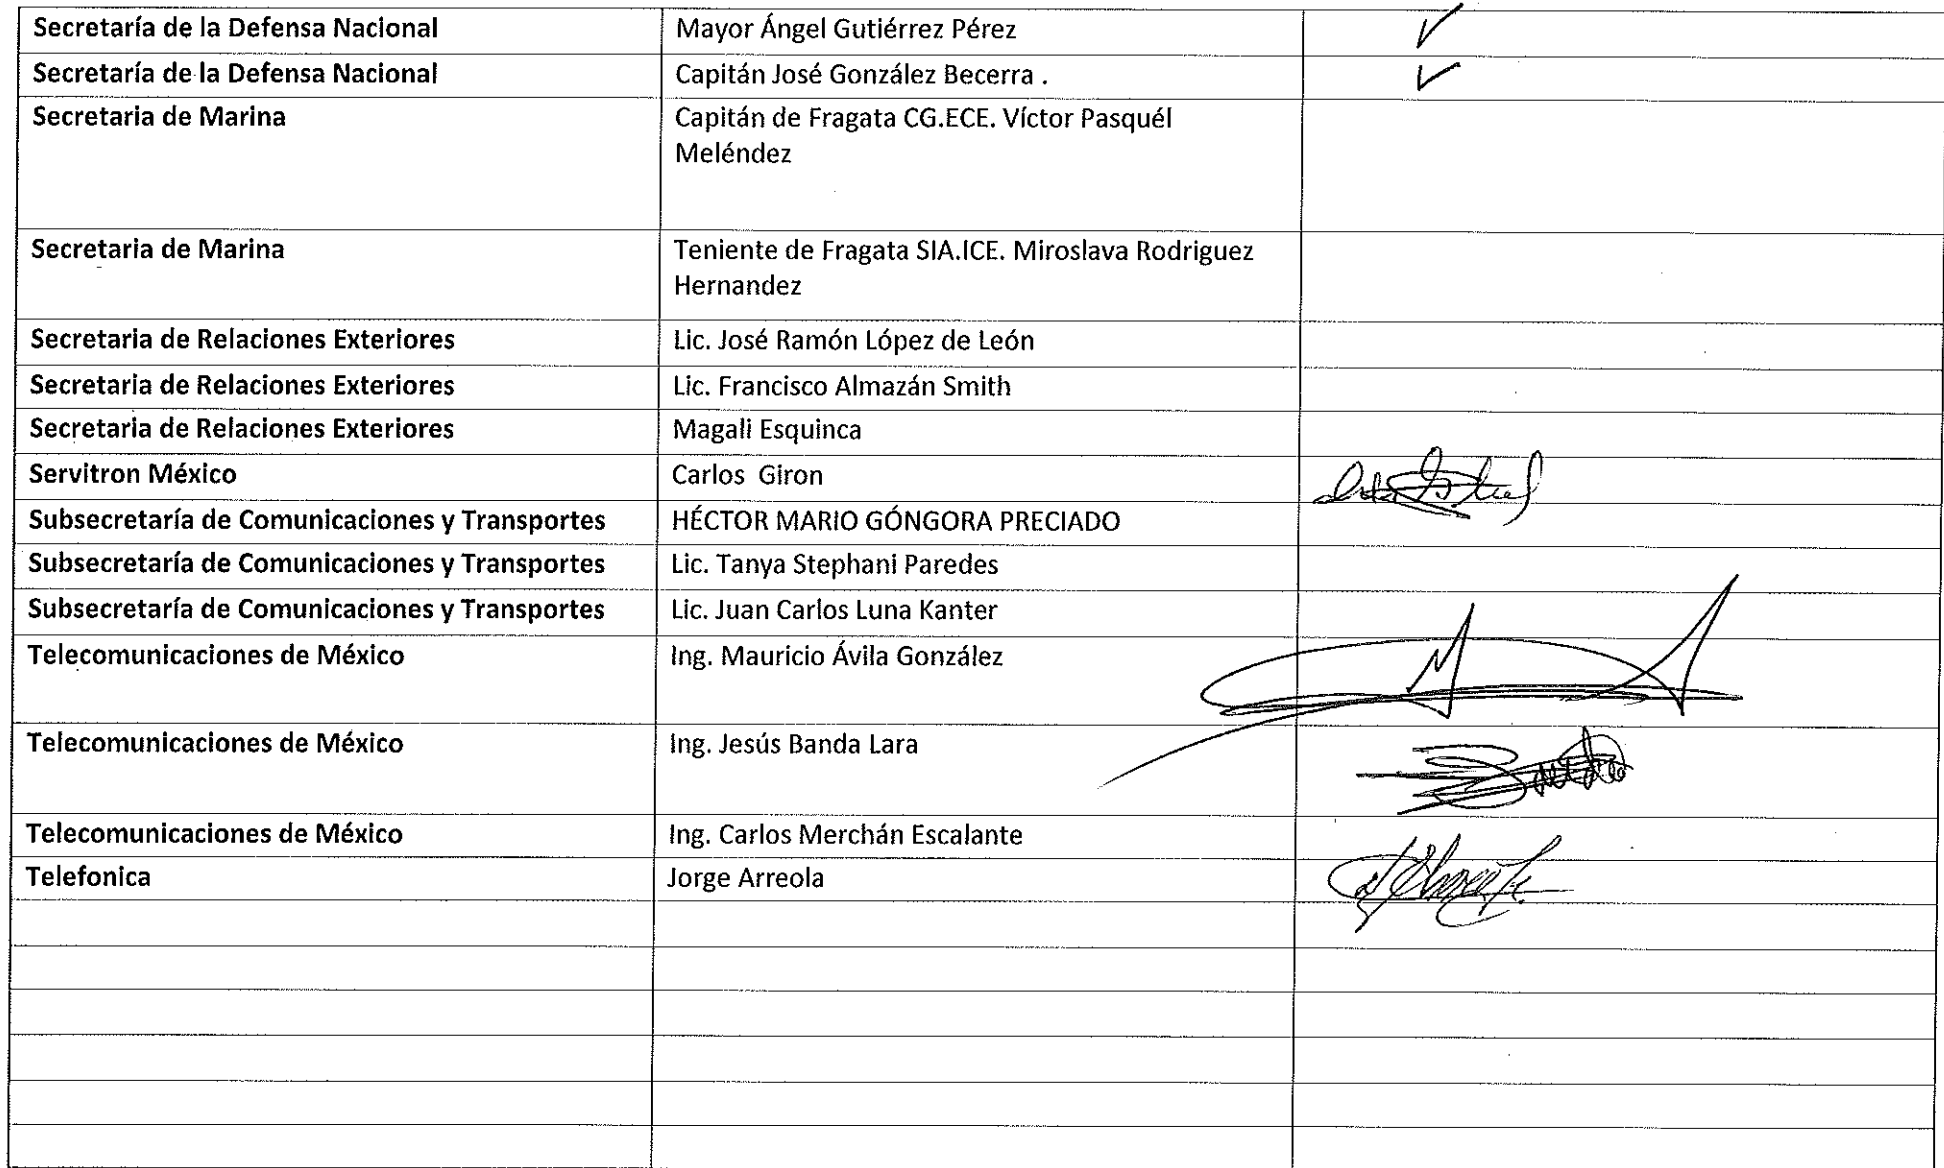 Secretaría de la Defensa Nacional Mayor Ángel Gutiérrez Pérez
Secretaría de la Defensa Nacional Capitán José González Becerra .
Secretaria de Marina Capitán de Fragata CG.ECE. Víctor Pasquél
Meléndez
Secretaria de Marina Teniente de Fragata SIA.ICE. Miroslava Rodriguez
Hernandez
Secretaria de Relaciones Exteriores Lic. José Ramón López de León
Secretaria de Relaciones Exteriores Lic. Francisco Almazán Smith
Secretaria de Relaciones Exteriores Magali Esquinca
Servitron México Carlos Giron
Subsecretaría de Comunicaciones y Transportes HÉCTOR MARIO GÓNGORA PRECIADO
Subsecretaría de Comunicaciones y Transportes Lic. Tanya Stephani Paredes
Subsecretaría de Comunicaciones y Transportes Lic. Juan Carlos Luna Kanter
Telecomunicaciones de México Ing. Mauricio Ávila González
Telecomunicaciones de México Ing. Jesús Banda Lara
Telecomunicaciones de México Ing. Carlos Merchán Escalante
Telefonica Jorge Arreola